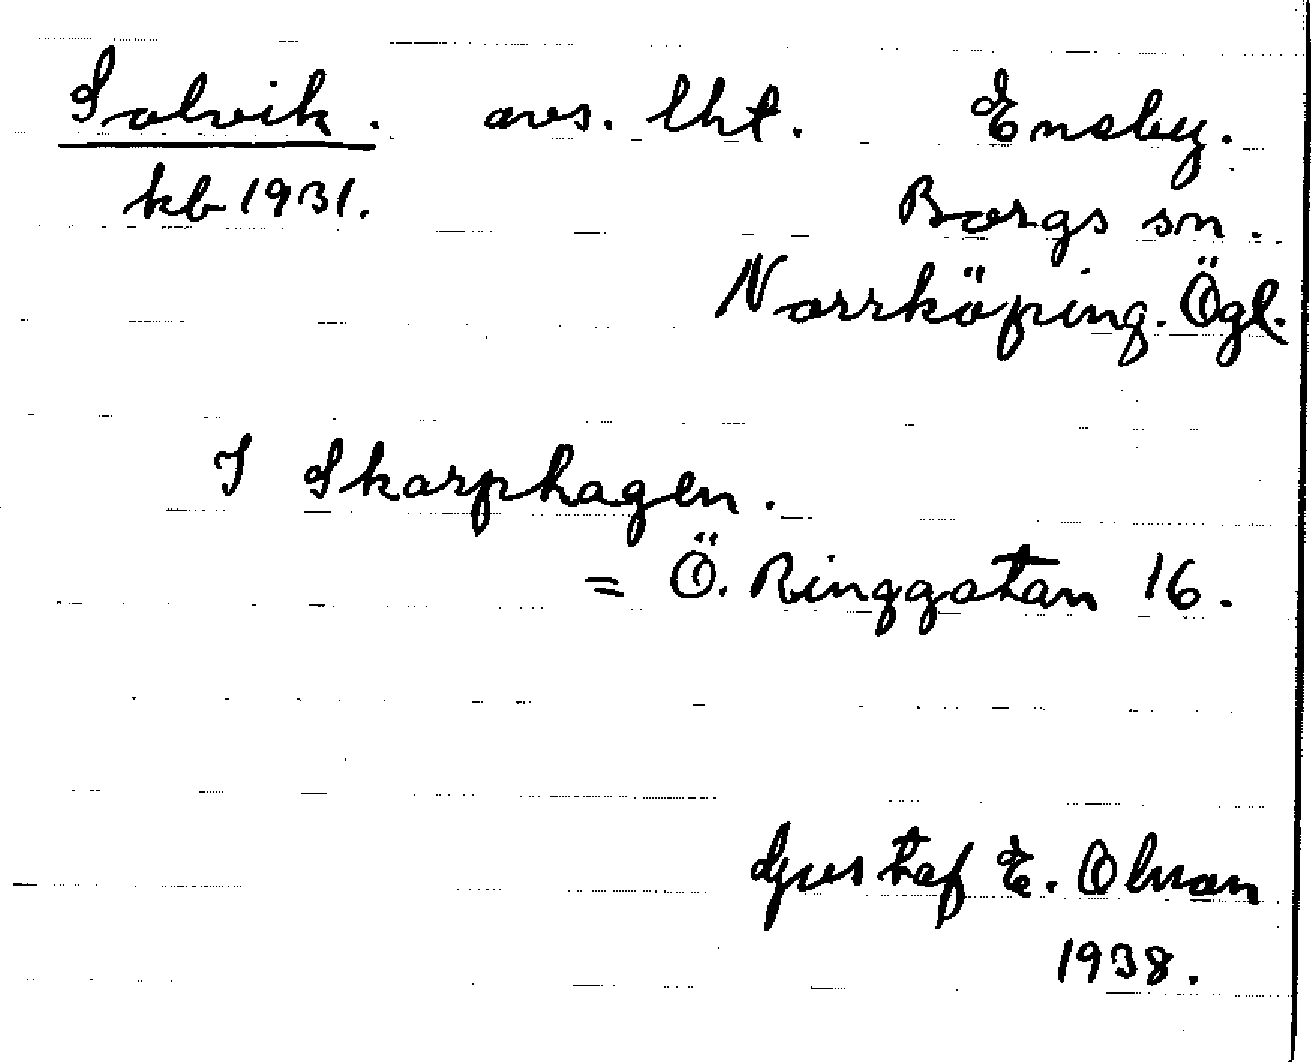 Solvik. avs. lht. Eneby.
kb 1931.
Borgs sn.
Norrköping. Ögl.
I Skarphagen.
= Ö. Ringgatan 16.
Gustaf E. Olson
1938.